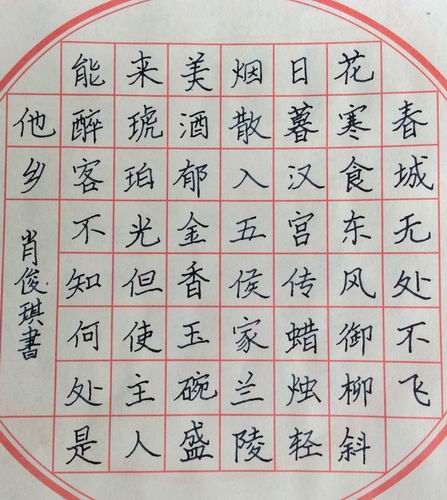 春城无处不飞
花寒食东风御柳斜
日暮汉宫传蜡烛轻
烟散入五侯家兰陵
美酒郁金香玉碗盛
来琥珀光但使主人
能醉客不知何处是
他乡
肖俊琪書